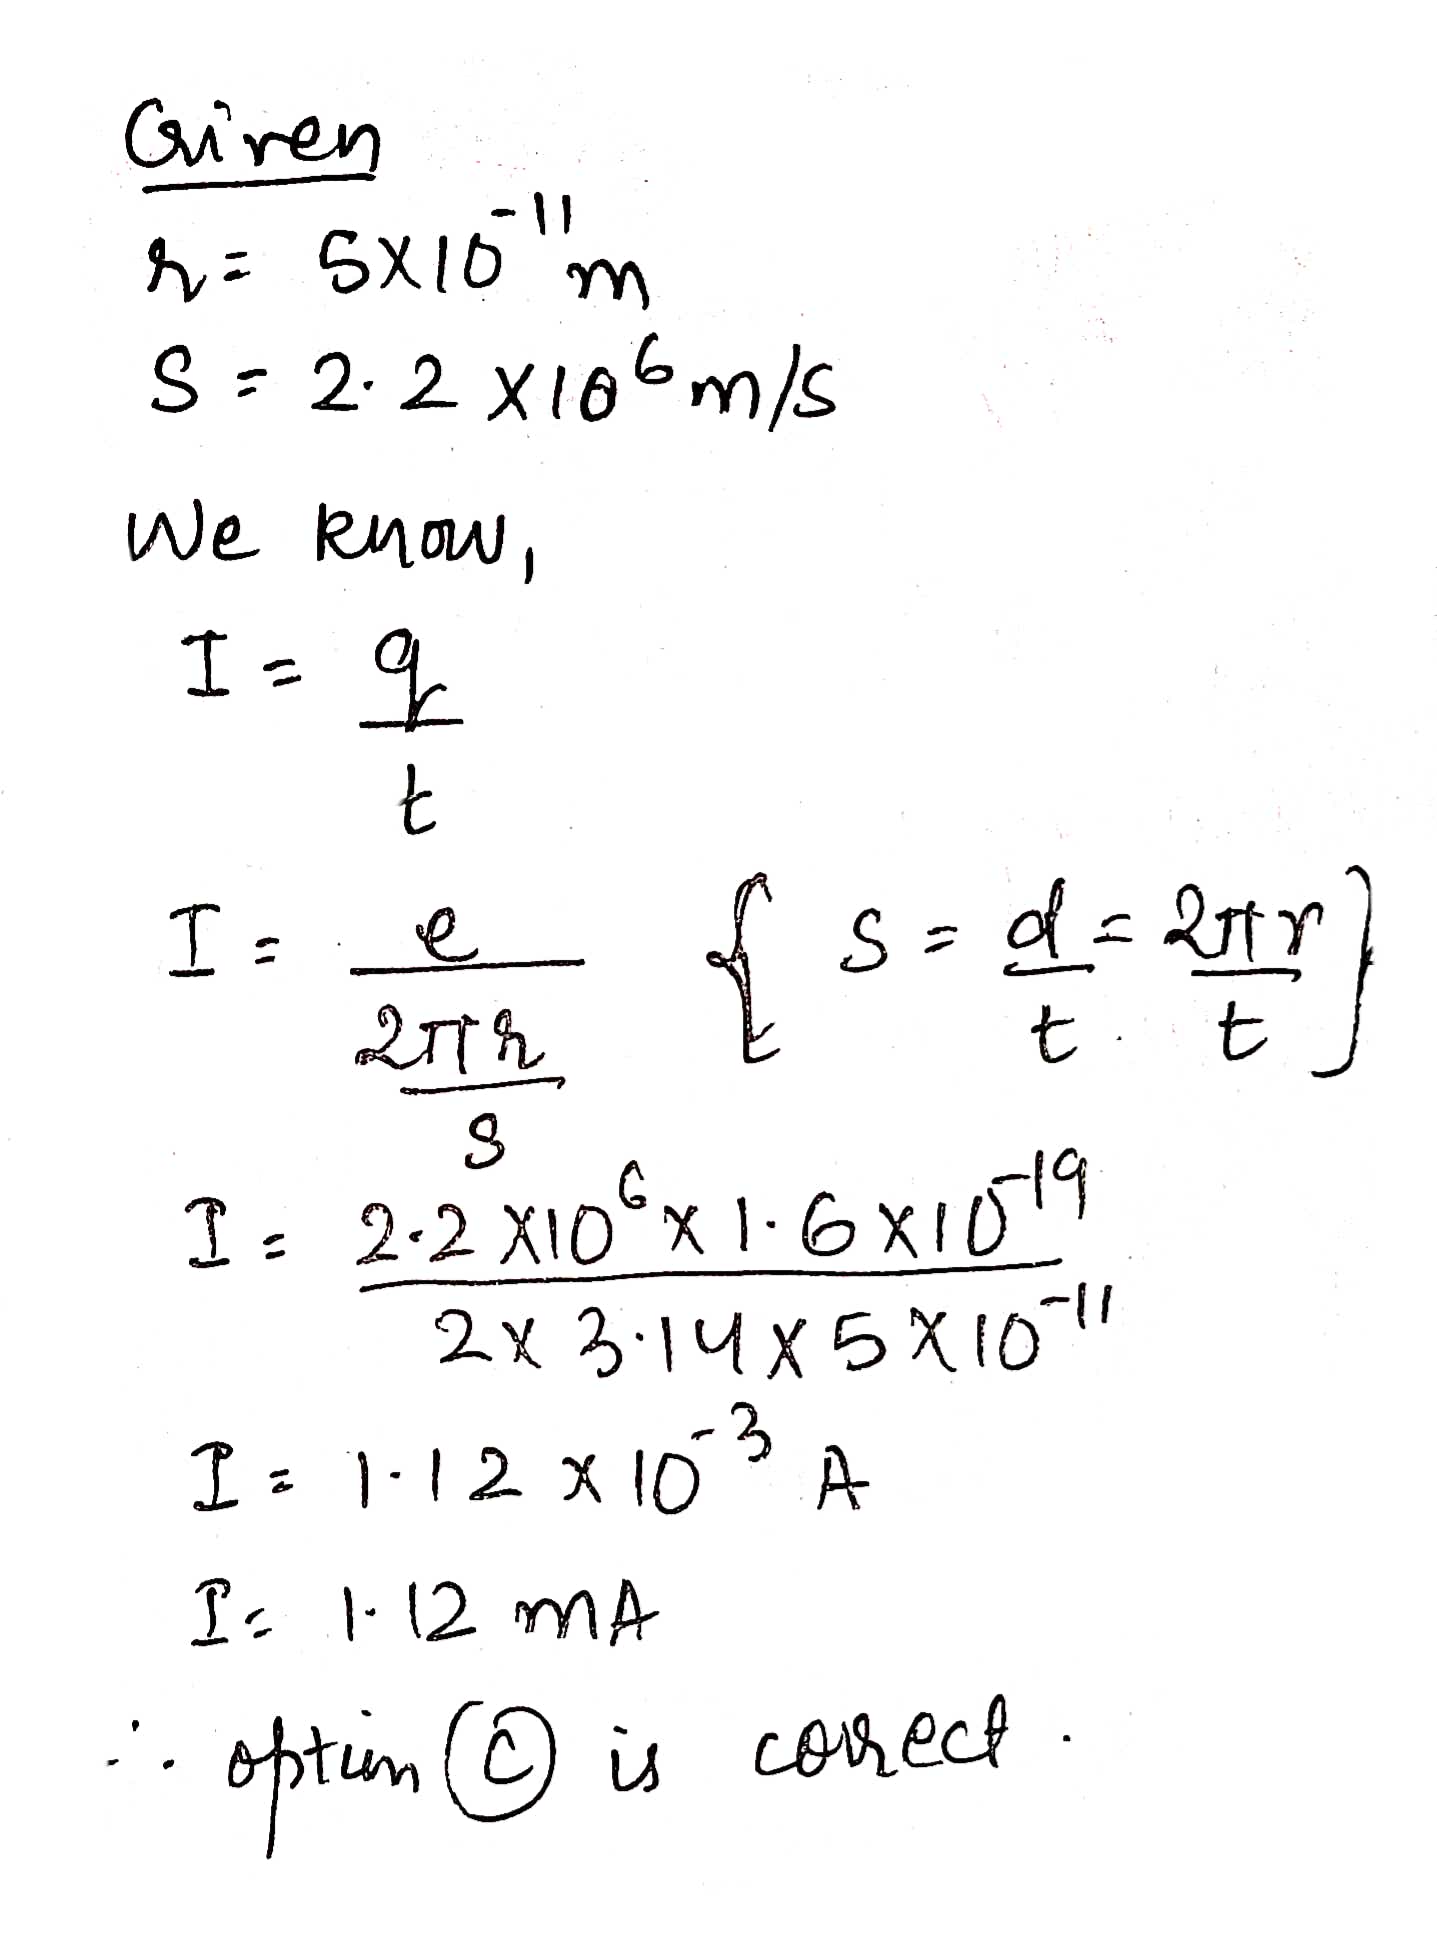 Given
r = 5×10⁻¹¹ m
S = 2.2 ×10⁶ m/s
We know,
I = q/t
I = e/(2πr/s) { s = d/t = 2πr/t }
I = (2.2 ×10⁶ × 1.6 ×10⁻¹⁹)/(2× 3.14 × 5 ×10⁻¹¹)
I = 1.12 × 10⁻³ A
I = 1.12 mA
∴ option (C) is correct.